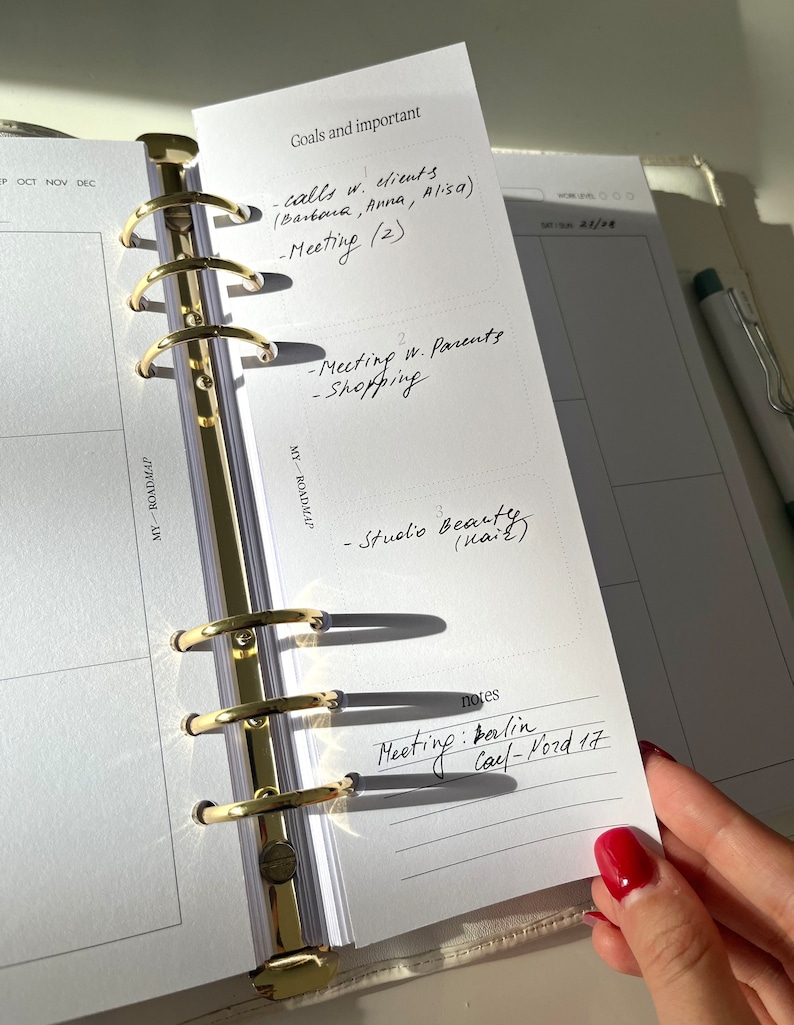 OCT NOV DEC
MY—ROADMAP
Goals and important
1
- calls w. clients
(Barbara, Anna, Alisa)
- Meeting (2)
2
- Meeting w. Parents
- Shopping
3
- Studio Beauty
(Hair)
MY—ROADMAP
notes
Meeting: Berlin
Nord 17
WORK LEVEL
SAT / SUN 27/28